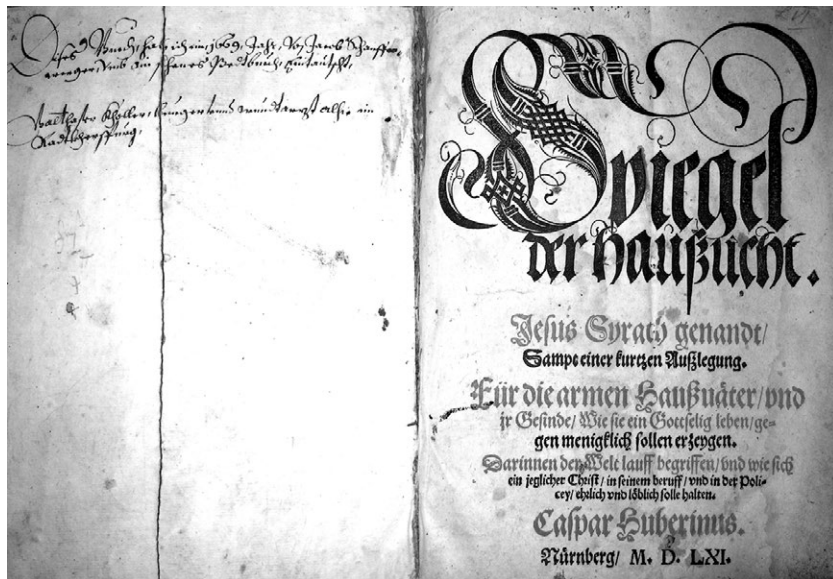 Dises Buech hab ich im 1669. Jahr, Jacob
ein schenes Bedtbuech,
Khöller, alhie in
Spiegel
der Haußzucht.
Jesus Syrach genandt/
Sampt einer kurtzen Außlegung.
Für die armen Haußuäter/vnd
jr Gesinde/ Wie sie ein Gottselig leben/ge-
gen menigklich sollen erzeygen.
Darinnen der Welt lauff begriffen/vnd wie sich
ein jeglicher Christ/ in seinem beruff/ vnd in der Poli-
cey/ ehrlich vnd löblich solle halten.
Caspar Huberinus.
Nürnberg/ M. D. LXI.